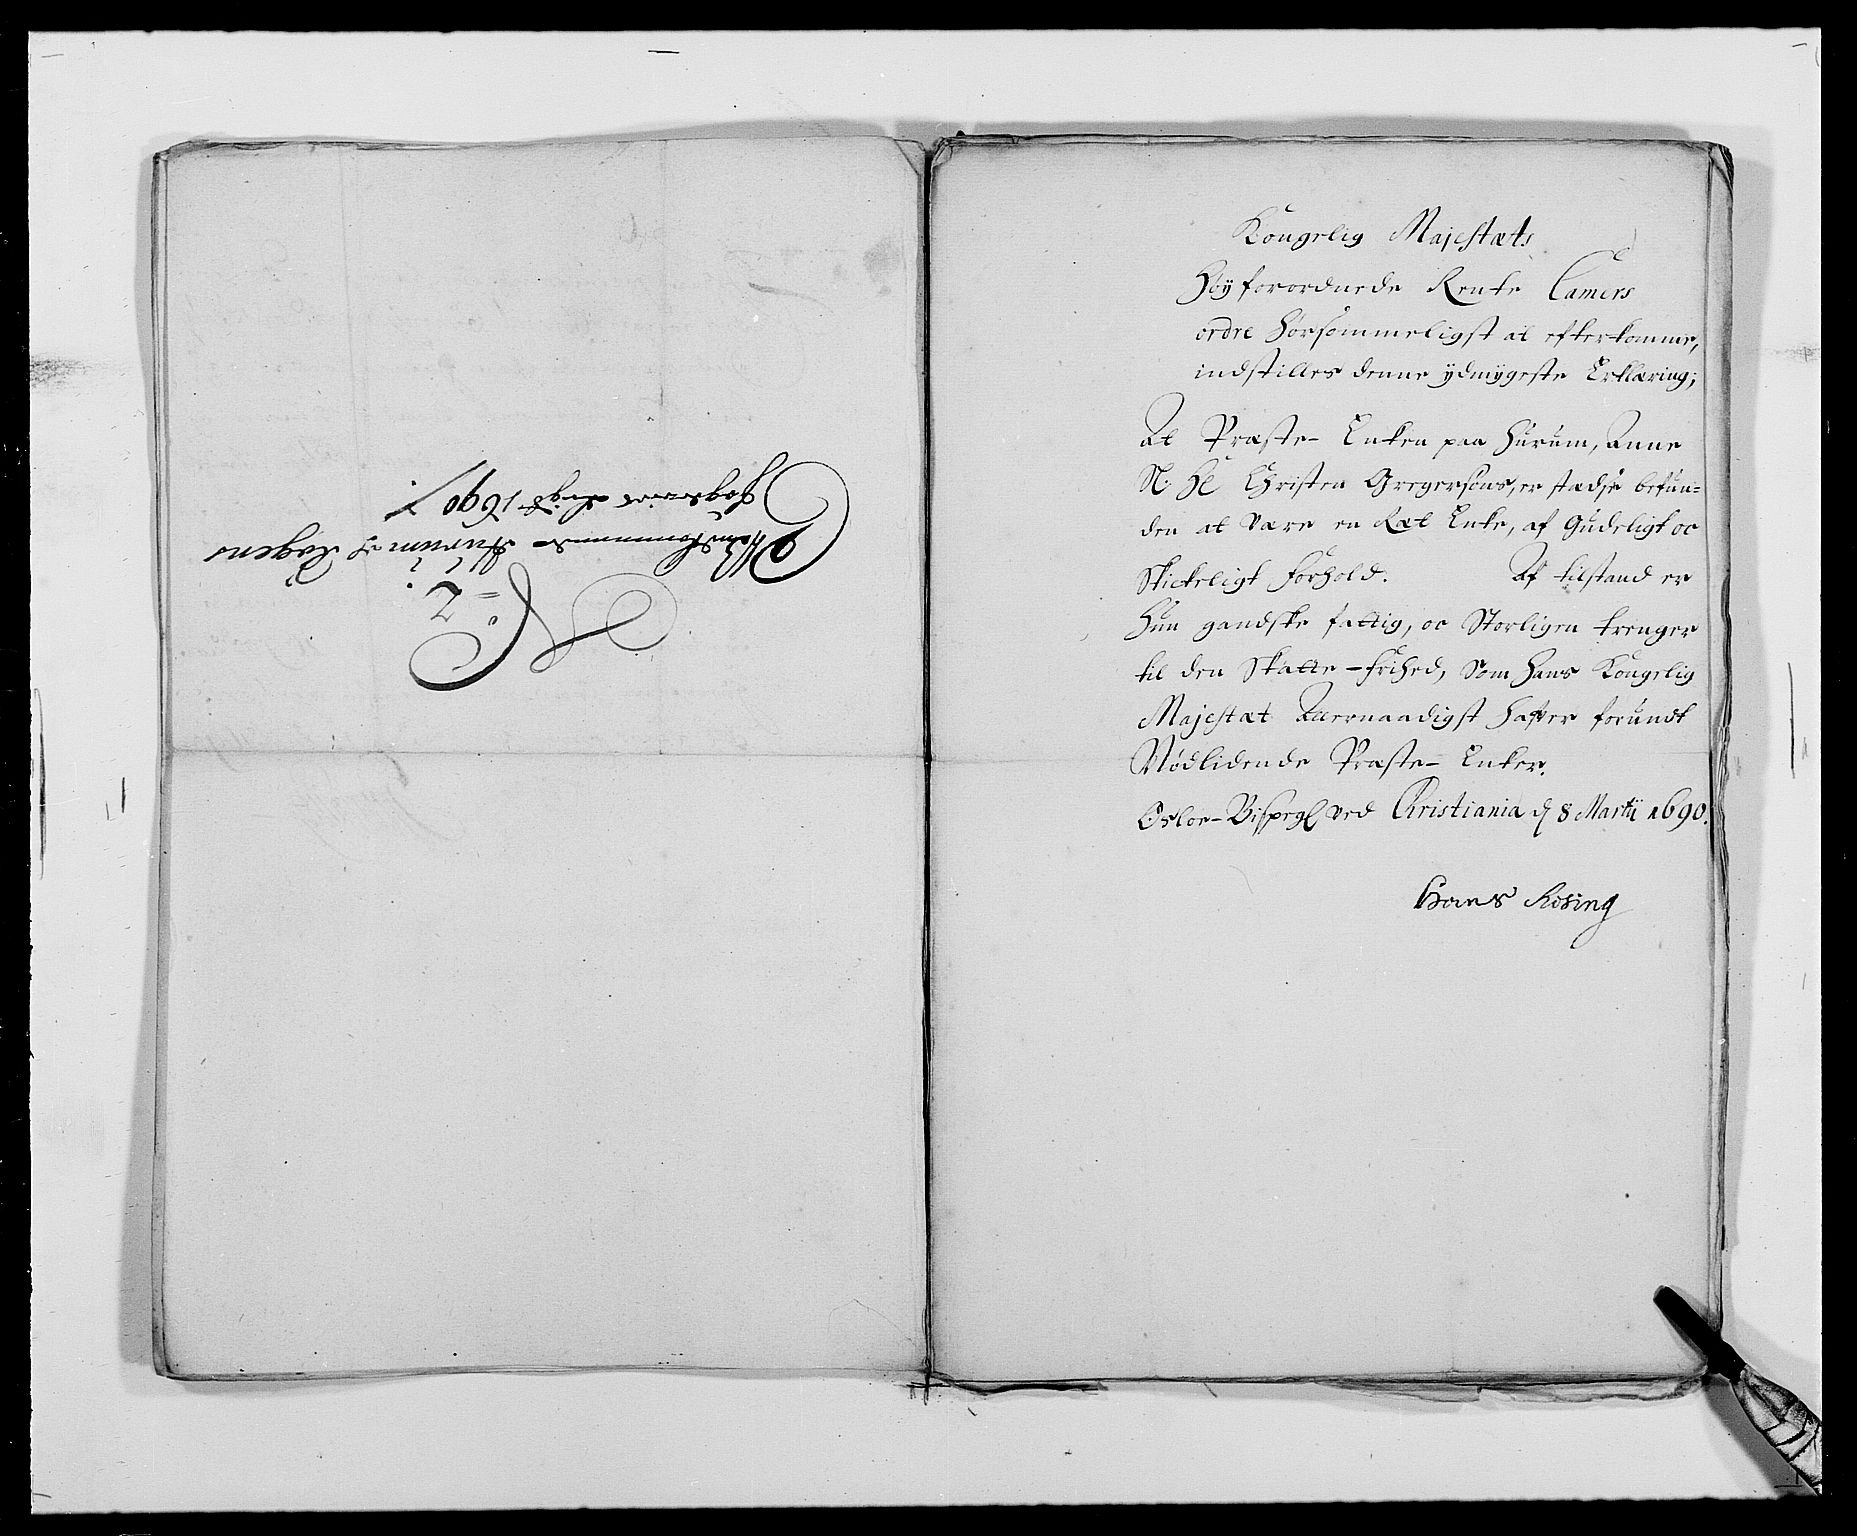 No 2
Hurum
1690
Kongelig Majestæts
Høyforordnede Rente Camers
ordre hørsommeligst at efterkomme,
indstilles denne ydmygeste Erklæring;
At Præste-Enken paa Hurum, Anne
Sl. Hr Christen Gregersøns, er stædse befun-
den at være en Ræt Enke, af Gudeligt oc
Skickeligt forhold. Af tilstand er
Hun gandske fattig, oc Storligen trenger
til den Skatte-frihed, Som Hans Kongelig
Majestæt Allernaadigst hafver forundt
Nødlidende Præste-Enker.
Osloe-Bispegl ved Christiania d 8 Martii 1690.
Hans Rosing